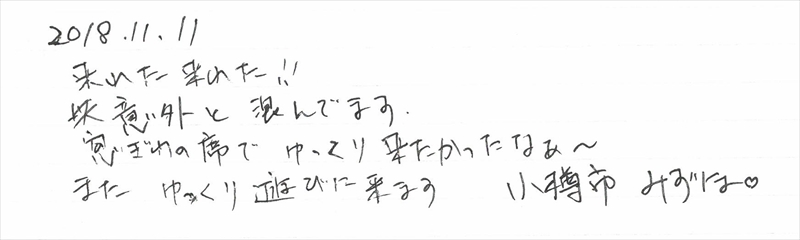 2018.11.11
来れた来れた!!
意外と混んでます.
窓ぎわの席で ゆっくり来たかったなぁ〜
また ゆっくり遊びに来ます 小樽市 みずほ♡